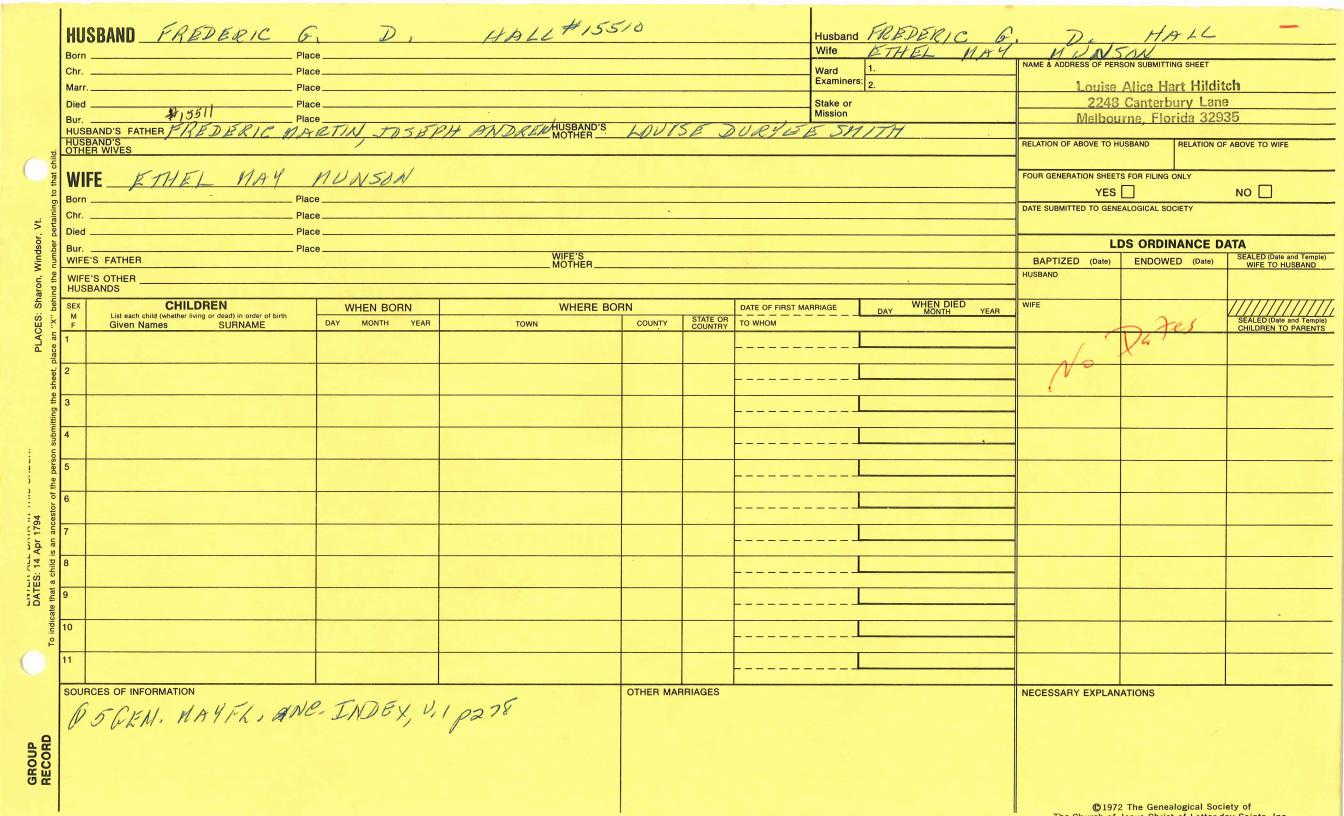 HUSBAND FREDERIC G. D. HALL #15510
Born Place
Chr. Place
Marr. Place
Died Place
Bur. #15511 Place
HUSBAND'S FATHER FREDERIC MARTIN, JOSEPH ANDREW HUSBAND'S MOTHER LOUISE DURYEE SMITH
HUSBAND'S OTHER WIVES
Husband FREDERIC G. D. HALL
Wife ETHEL MAY MUNSON
Ward Examiners: 1.
2.
Stake or Mission
NAME & ADDRESS OF PERSON SUBMITTING SHEET
Louise Alice Hart Hilditch
2243 Canterbury Lane
Melbourne, Florida 32935
RELATION OF ABOVE TO HUSBAND RELATION OF ABOVE TO WIFE
FOUR GENERATION SHEETS FOR FILING ONLY
YES NO
DATE SUBMITTED TO GENEALOGICAL SOCIETY
WIFE ETHEL MAY MUNSON
Born Place
Chr. Place
Died Place
Bur. Place
WIFE'S FATHER WIFE'S MOTHER
WIFE'S OTHER HUSBANDS
LDS ORDINANCE DATA
BAPTIZED (Date) ENDOWED (Date) SEALED (Date and Temple) WIFE TO HUSBAND
HUSBAND
WIFE
SEALED (Date and Temple) CHILDREN TO PARENTS
SEX M F
CHILDREN
List each child (whether living or dead) in order of birth
Given Names SURNAME
WHEN BORN
DAY MONTH YEAR
WHERE BORN
TOWN COUNTY STATE OR COUNTRY
DATE OF FIRST MARRIAGE
TO WHOM
WHEN DIED
DAY MONTH YEAR
No Dates
1
2
3
4
5
6
7
8
9
10
11
SOURCES OF INFORMATION
5 GEN. MAYFL. ANC. INDEX, V.1 p278
OTHER MARRIAGES
NECESSARY EXPLANATIONS
PLACES: Sharon, Windsor, Vt.
DATES: 14 Apr 1794
To indicate that a child is an ancestor of the person submitting the sheet, place an "X" behind the number pertaining to that child.
GROUP RECORD
©1972 The Genealogical Society of
The Church of Jesus Christ of Latter-day Saints, Inc.